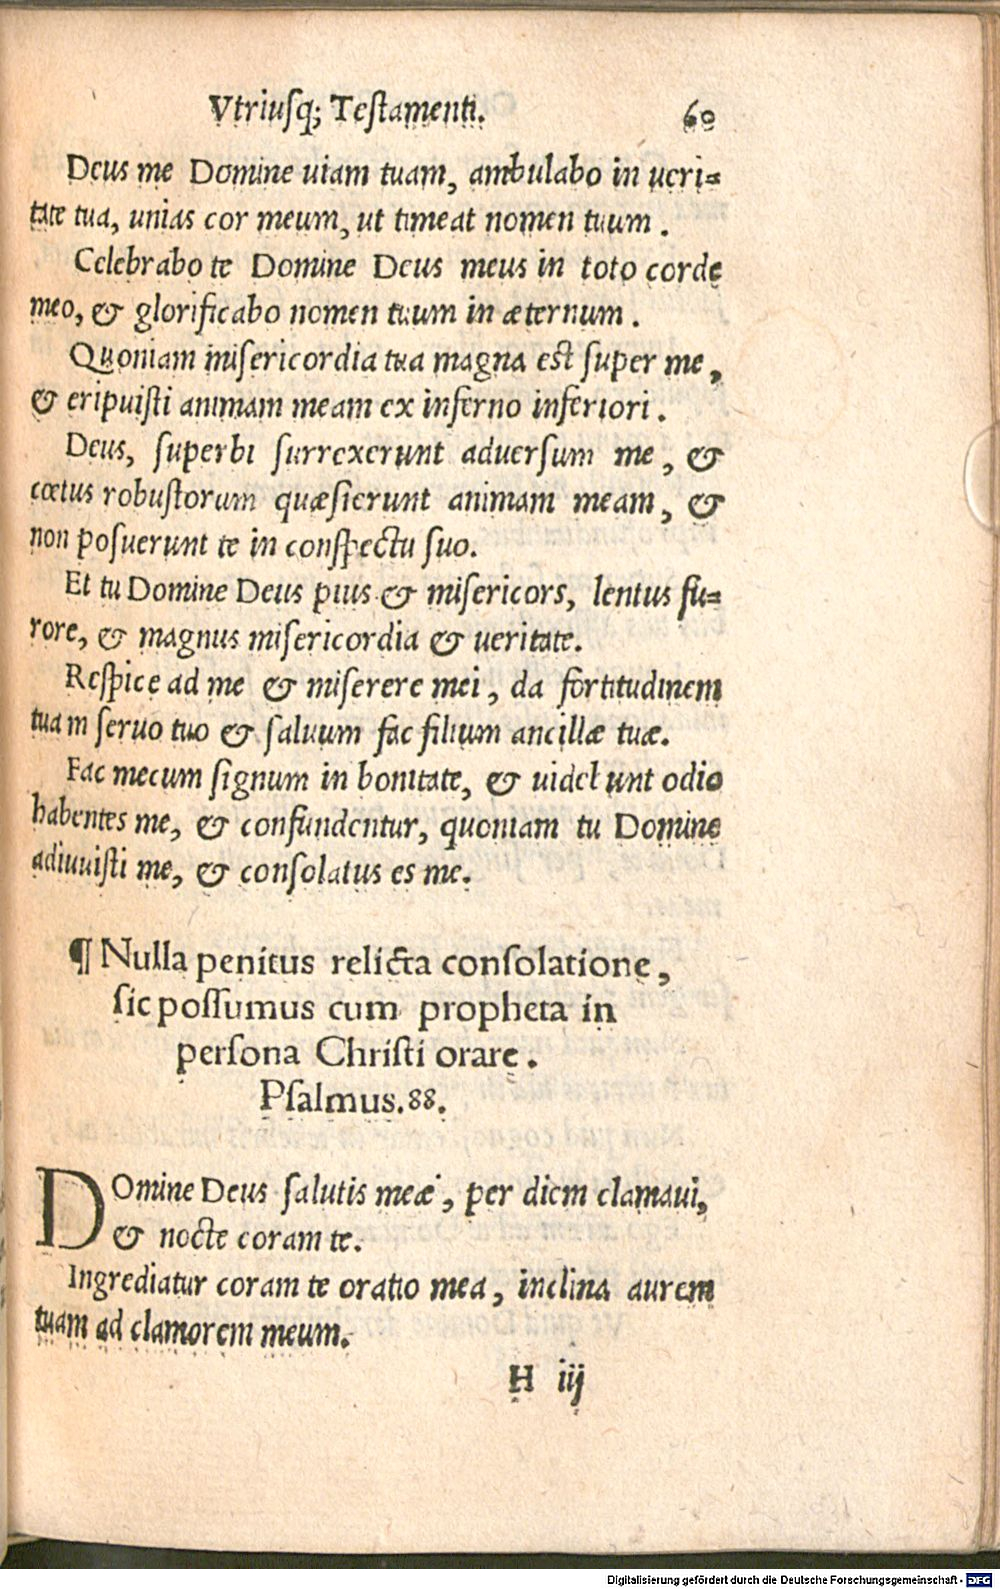 Vtriusq; Testamenti. 60
Deus me Domine uiam tuam, ambulabo in ueri=
tate tua, unias cor meum, ut timeat nomen tuum .
Celebrabo te Domine Deus meus in toto corde
meo, & glorificabo nomen tuum in æternum .
Quoniam misericordia tua magna est super me ,
& eripuisti animam meam ex inferno inferiori .
Deus, superbi surrexerunt aduersum me , &
cœtus robustorum quæsierunt animam meam , &
non posuerunt te in conspectu suo.
Et tu Domine Deus pius & misericors, lentus fu=
rore, & magnus misericordia & ueritate.
Respice ad me & miserere mei , da fortitudinem
tuam seruo tuo & saluum fac filium ancillæ tuæ.
Fac mecum signum in bonitate, & uidebunt odio
habentes me, & confundentur, quoniam tu Domine
adiuuisti me, & consolatus es me.
¶ Nulla penitus relicta consolatione ,
sic possumus cum propheta in
persona Christi orare .
Psalmus.88.
DOmine Deus salutis meæ , per diem clamaui,
& nocte coram te.
Ingrediatur coram te oratio mea , inclina aurem
tuam ad clamorem meum.
H iij
Digitalisierung gefördert durch die Deutsche Forschungsgemeinschaft - DFG